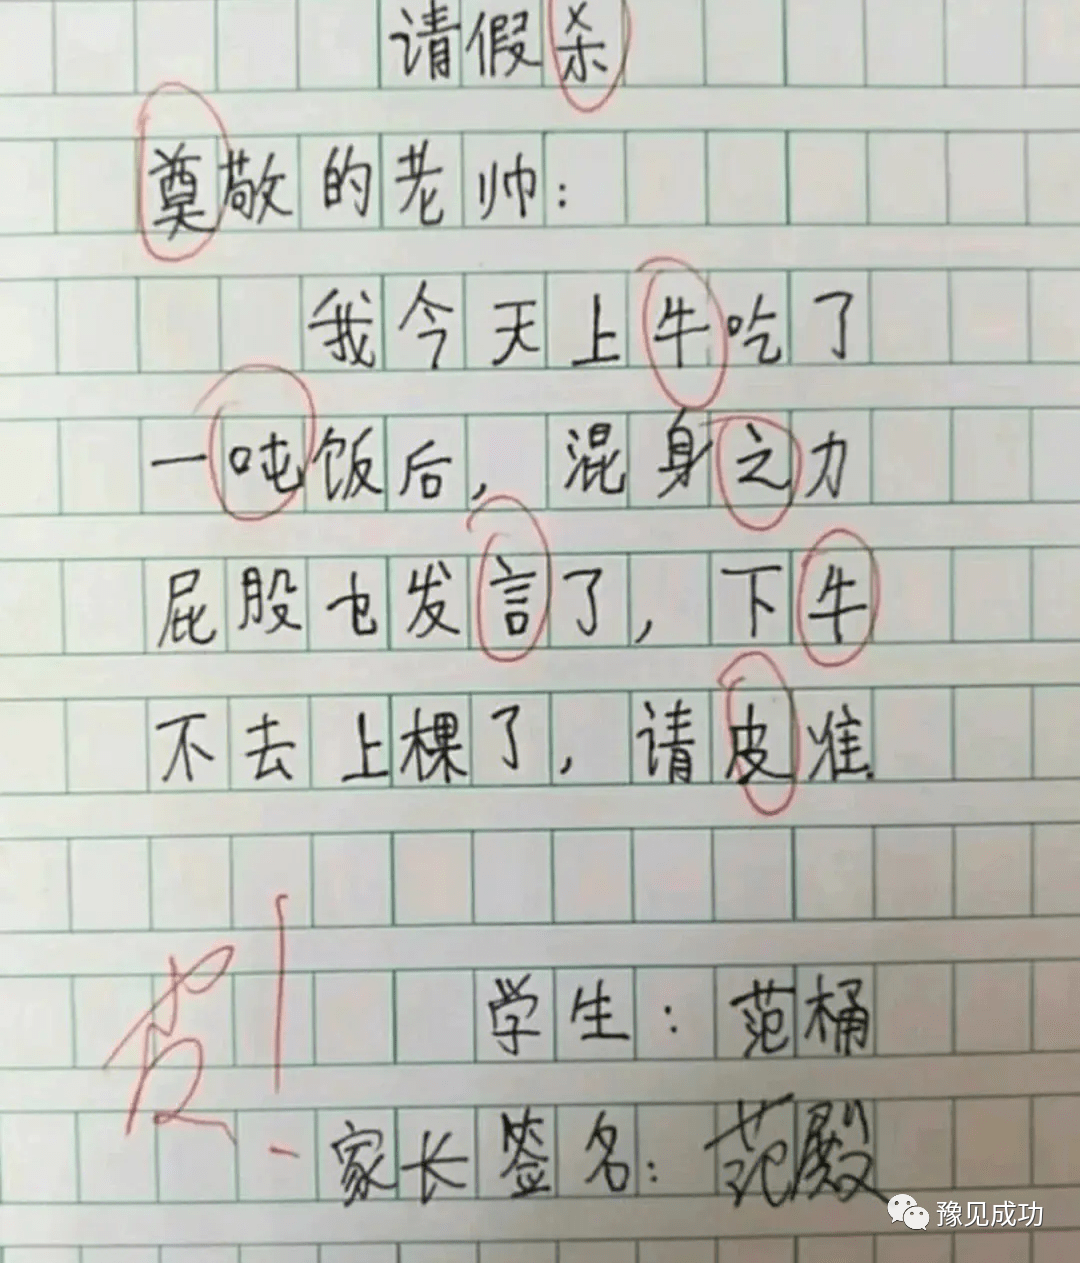 请假杀
奠敬的老帅：
我今天上牛吃了
一吨饭后，混身之力
屁股也发言了，下牛
不去上棵了，请皮准.
皮！
学生：范桶
家长签名：范殿
豫见成功